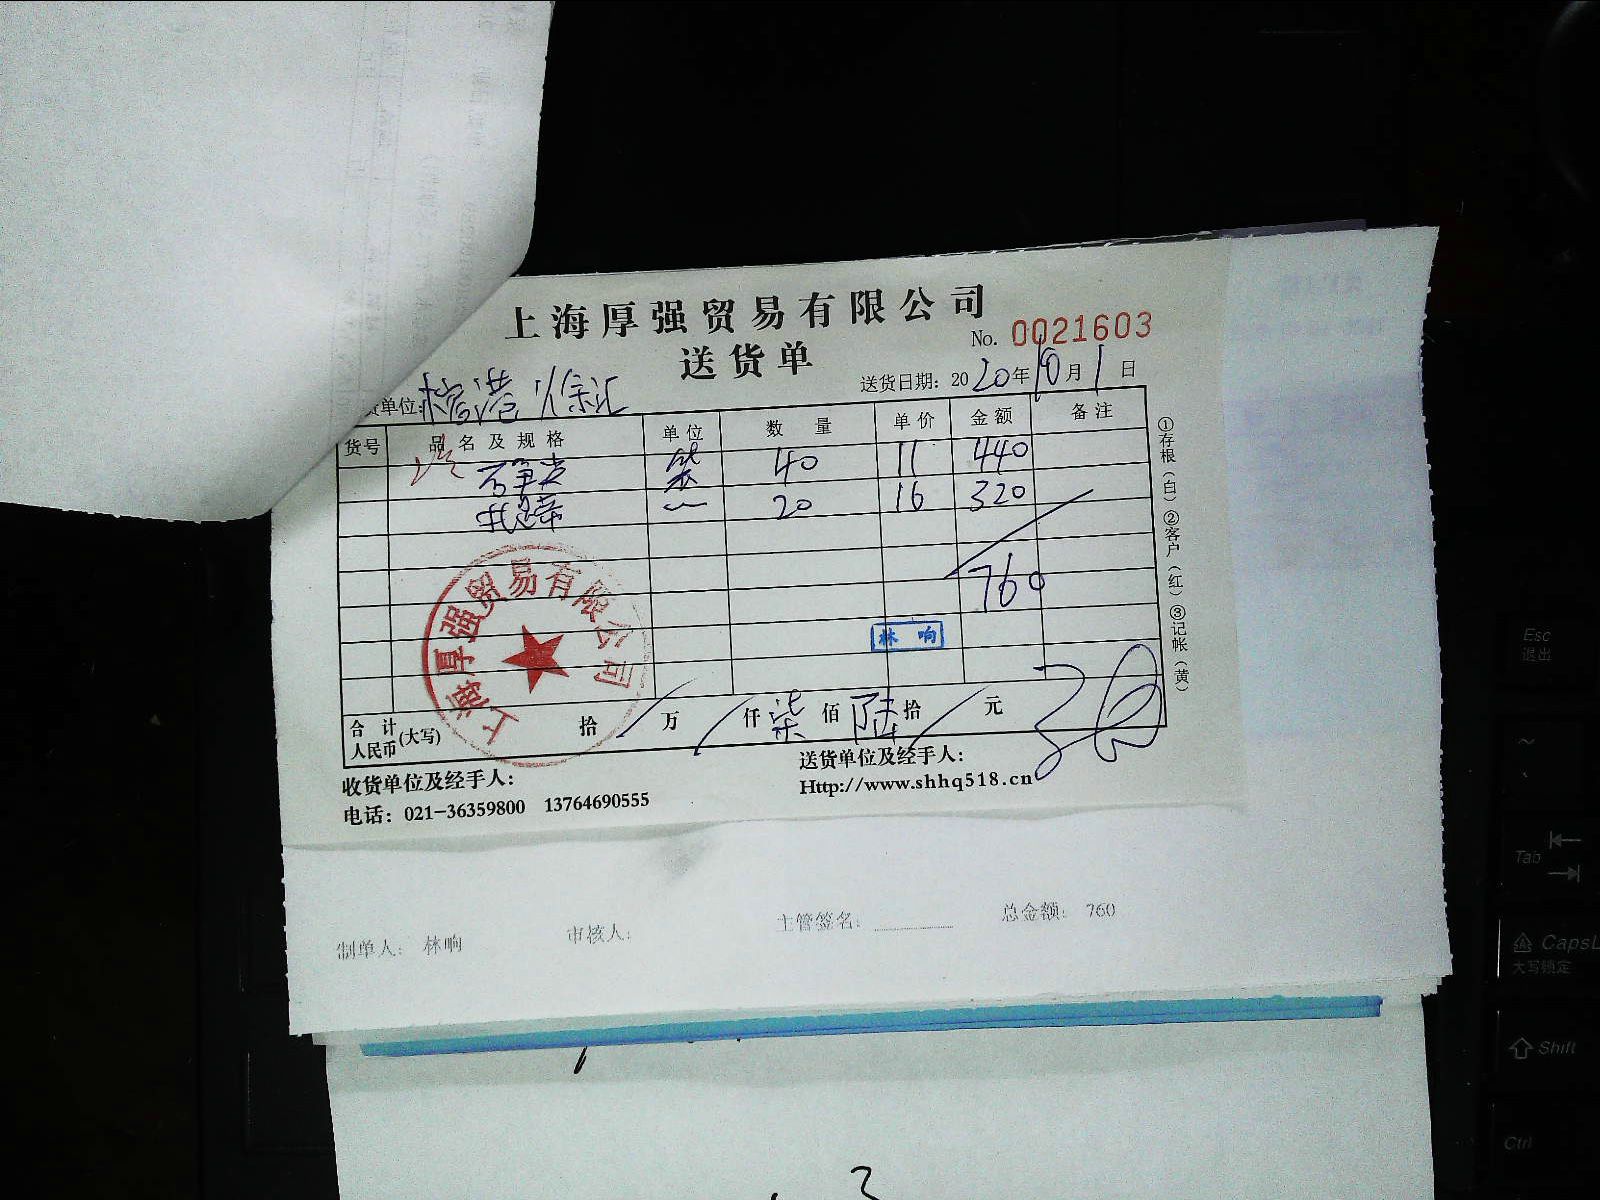 上海厚强贸易有限公司
No. 0021603
送货单
送货日期: 2020年10月1日
货单位: 徐汇
货号 品名及规格 单位 数量 单价 金额 备注
袋 40 11 440
20 16 320
760
林响
合计人民币(大写) 拾 万 仟 柒 佰 陆 拾 元
①存根(白) ②客户(红) ③记帐(黄)
上海厚强贸易有限公司
收货单位及经手人:
送货单位及经手人:
电话: 021-36359800 13764690555
Http://www.shhq518.cn
制单人: 林响 审核人: 主管签名: 总金额: 760
Esc
退出
~
Tab
CapsL
大写锁定
Shift
Ctrl